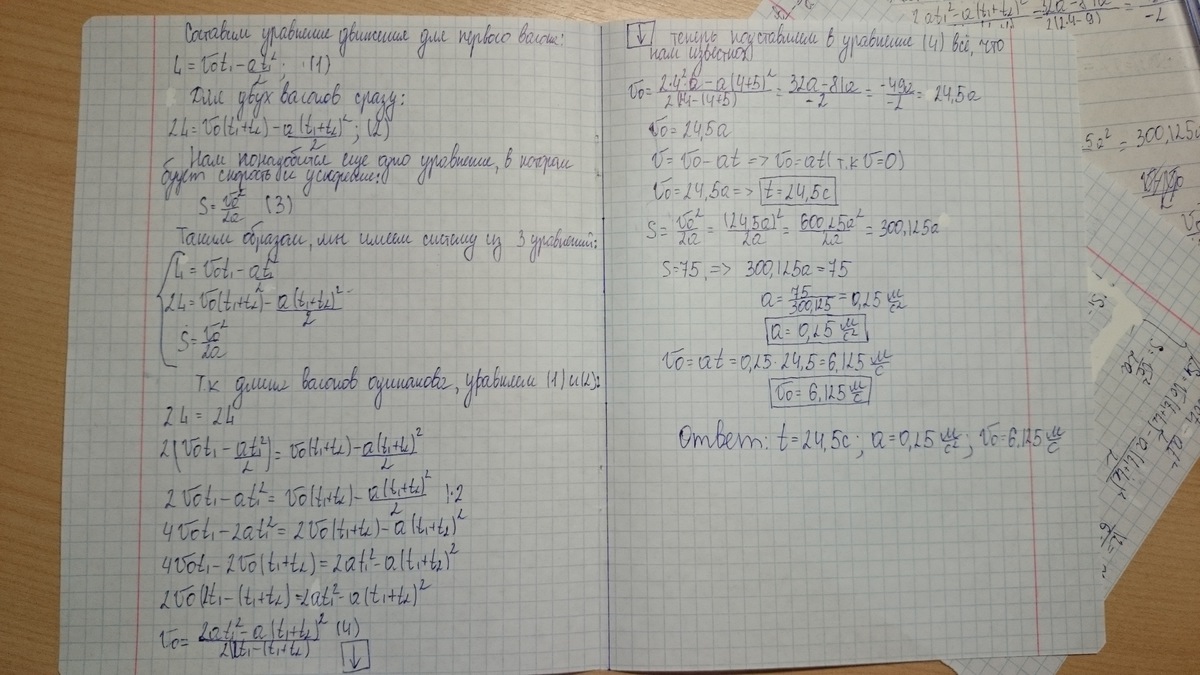 Составим уравнение движения для первого вагона:
L = v₀t₁ - at₁²/2; (1)
Для двух вагонов сразу:
2L = v₀(t₁+t₂) - a(t₁+t₂)²/2; (2)
Нам понадобится еще одно уравнение, в котором
будет скорость и ускорение:
S = v₀²/2a (3)
Таким образом, мы имеем систему из 3 уравнений:
L = v₀t₁ - at₁²/2
2L = v₀(t₁+t₂) - a(t₁+t₂)²/2
S = v₀²/2a
Т.к длина вагонов одинакова, уравняем (1) и (2):
2L = 2L
2(v₀t₁ - at₁²/2) = v₀(t₁+t₂) - a(t₁+t₂)²/2
2v₀t₁ - at₁² = v₀(t₁+t₂) - a(t₁+t₂)²/2 |·2
4v₀t₁ - 2at₁² = 2v₀(t₁+t₂) - a(t₁+t₂)²
4v₀t₁ - 2v₀(t₁+t₂) = 2at₁² - a(t₁+t₂)²
2v₀(2t₁ - (t₁+t₂) = 2at₁² - a(t₁+t₂)²
v₀ = 2at₁² - a(t₁+t₂)² / 2(2t₁ - (t₁+t₂) (4)
↓
↓ теперь подставляем в уравнение (4) всё, что
нам известно
v₀ = 2·4²·a - a(4+5)² / 2(4 - (4+5) = 32a - 81a / -2 = -49a / -2 = 24,5a
v₀ = 24,5a
v = v₀ - at => v₀ = at (т.к v = 0)
v₀ = 24,5a => t = 24,5с
S = v₀²/2a = (24,5a)²/2a = 600,25a²/2a = 300,125a
S = 75, => 300,125a = 75
a = 75/300,125 = 0,25 м/с²
a = 0,25 м/с²
v₀ = at = 0,25·24,5 = 6,125 м/с
v₀ = 6,125 м/с
Ответ: t = 24,5с; a = 0,25 м/с²; v₀ = 6,125 м/с
= 300,125a